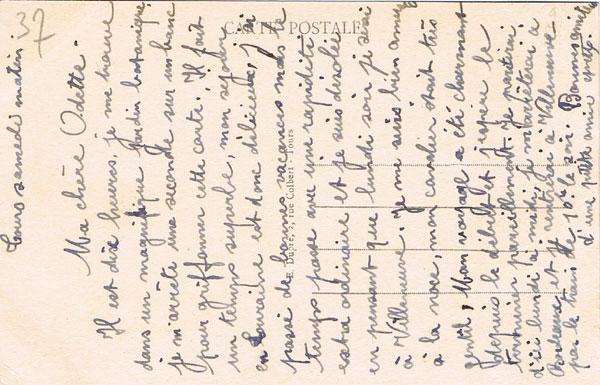 37
CARTE POSTALE
E. Dupré, 7, rue Colbert - Tours
Tours samedi matin
Ma chère Odette -
Il est dix heures, je me trouve
dans un magnifique jardin botanique
je m'arrête une seconde sur un banc
pour griffonner cette carte. Il fait
un temps superbe, mon séjour
en Touraine est donc délicieux, j'ai
passé de bonnes vacances mais le
temps passe avec une rapidité
extraordinaire et je suis désolée
en pensant que lundi soir je serai
à Villeneuve. Je me suis bien amusée
à la noce, mon cavalier était très
gentil, Mon voyage a été charmant
depuis le début et j'espère le
terminer pareillement. Je partirai
d'ici lundi à midi, je m'arrêterai à
Bordeaux et je rentrerai à Villeneuve
par le train de 10h le soir. Bonne santé
d'une petite amie